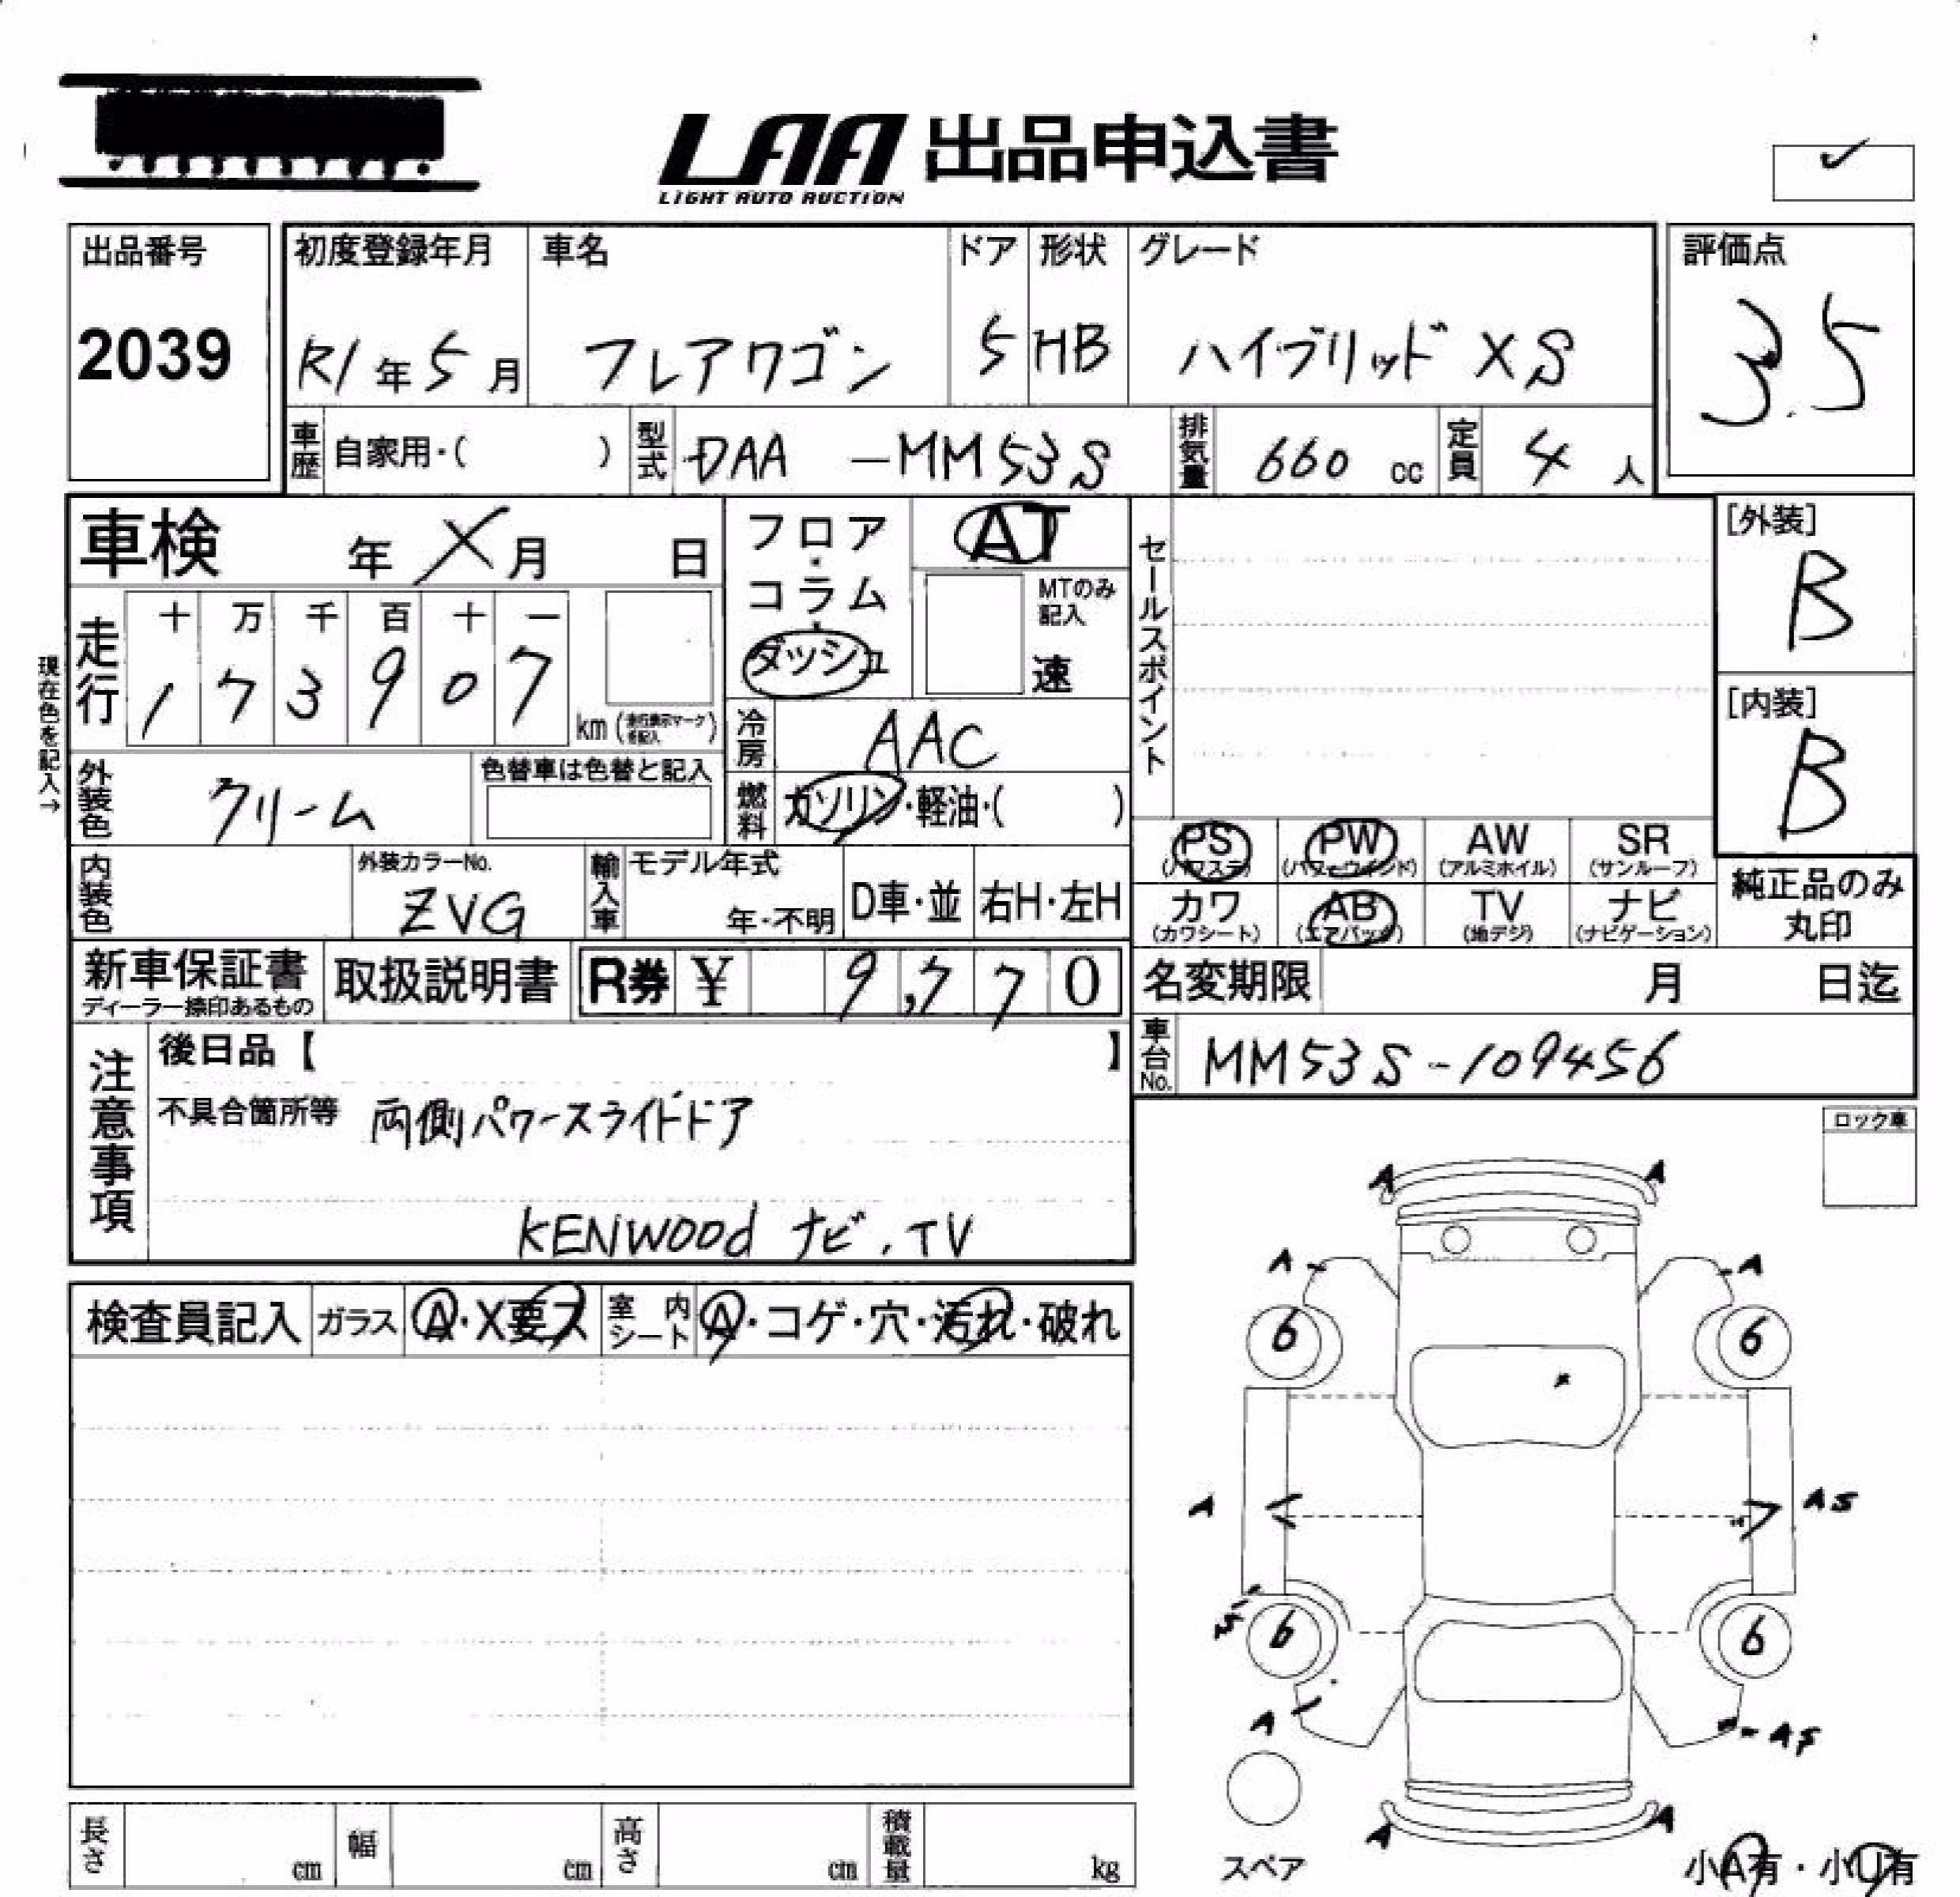 LAA 出品申込書
LIGHT AUTO AUCTION
出品番号
2039
初度登録年月 車名 ドア 形状 グレード
R1年5月 フレアワゴン 5 HB ハイブリッド XS
評価点
3.5
車歴 自家用・( ) 型式 DAA -MM53S 排気量 660 cc 定員 4 人
車検 年 X 月 日
フロア・コラム・ダッシュ
AT
MTのみ記入
速
セールスポイント
[外装]
B
[内装]
B
現在色を記入→
走行 十 万 千 百 十 一
1 7 3 9 0 7
km
冷房 AAC
外装色 クリーム
色替車は色替と記入
燃料 ガソリン・軽油・( )
PS AW SR PW
(パワステ) (パワーウインド) (アルミホイル) (サンルーフ)
カワ AB TV ナビ
(カワシート) (エアバック) (地デジ) (ナビゲーション)
純正品のみ丸印
内装色
外装カラーNo.
ZVG
輸入車 モデル年式
年・不明
D車・並 右H・左H
新車保証書
ディーラー捺印あるもの
取扱説明書
R券 ¥ 9,770
名変期限 月 日迄
車台No. MM53S-109456
注意事項
後日品【 】
不具合箇所等 両側パワースライドドア
KENWOOD ナビ.TV
ロック車
検査員記入 ガラス A・X要ス 室内シート A・コゲ・穴・汚れ・破れ
A A
A A
6 6
A AS
S
6 6
A
A A
スペア
小A有・小U有
長さ cm 幅 cm 高さ cm 積載量 kg